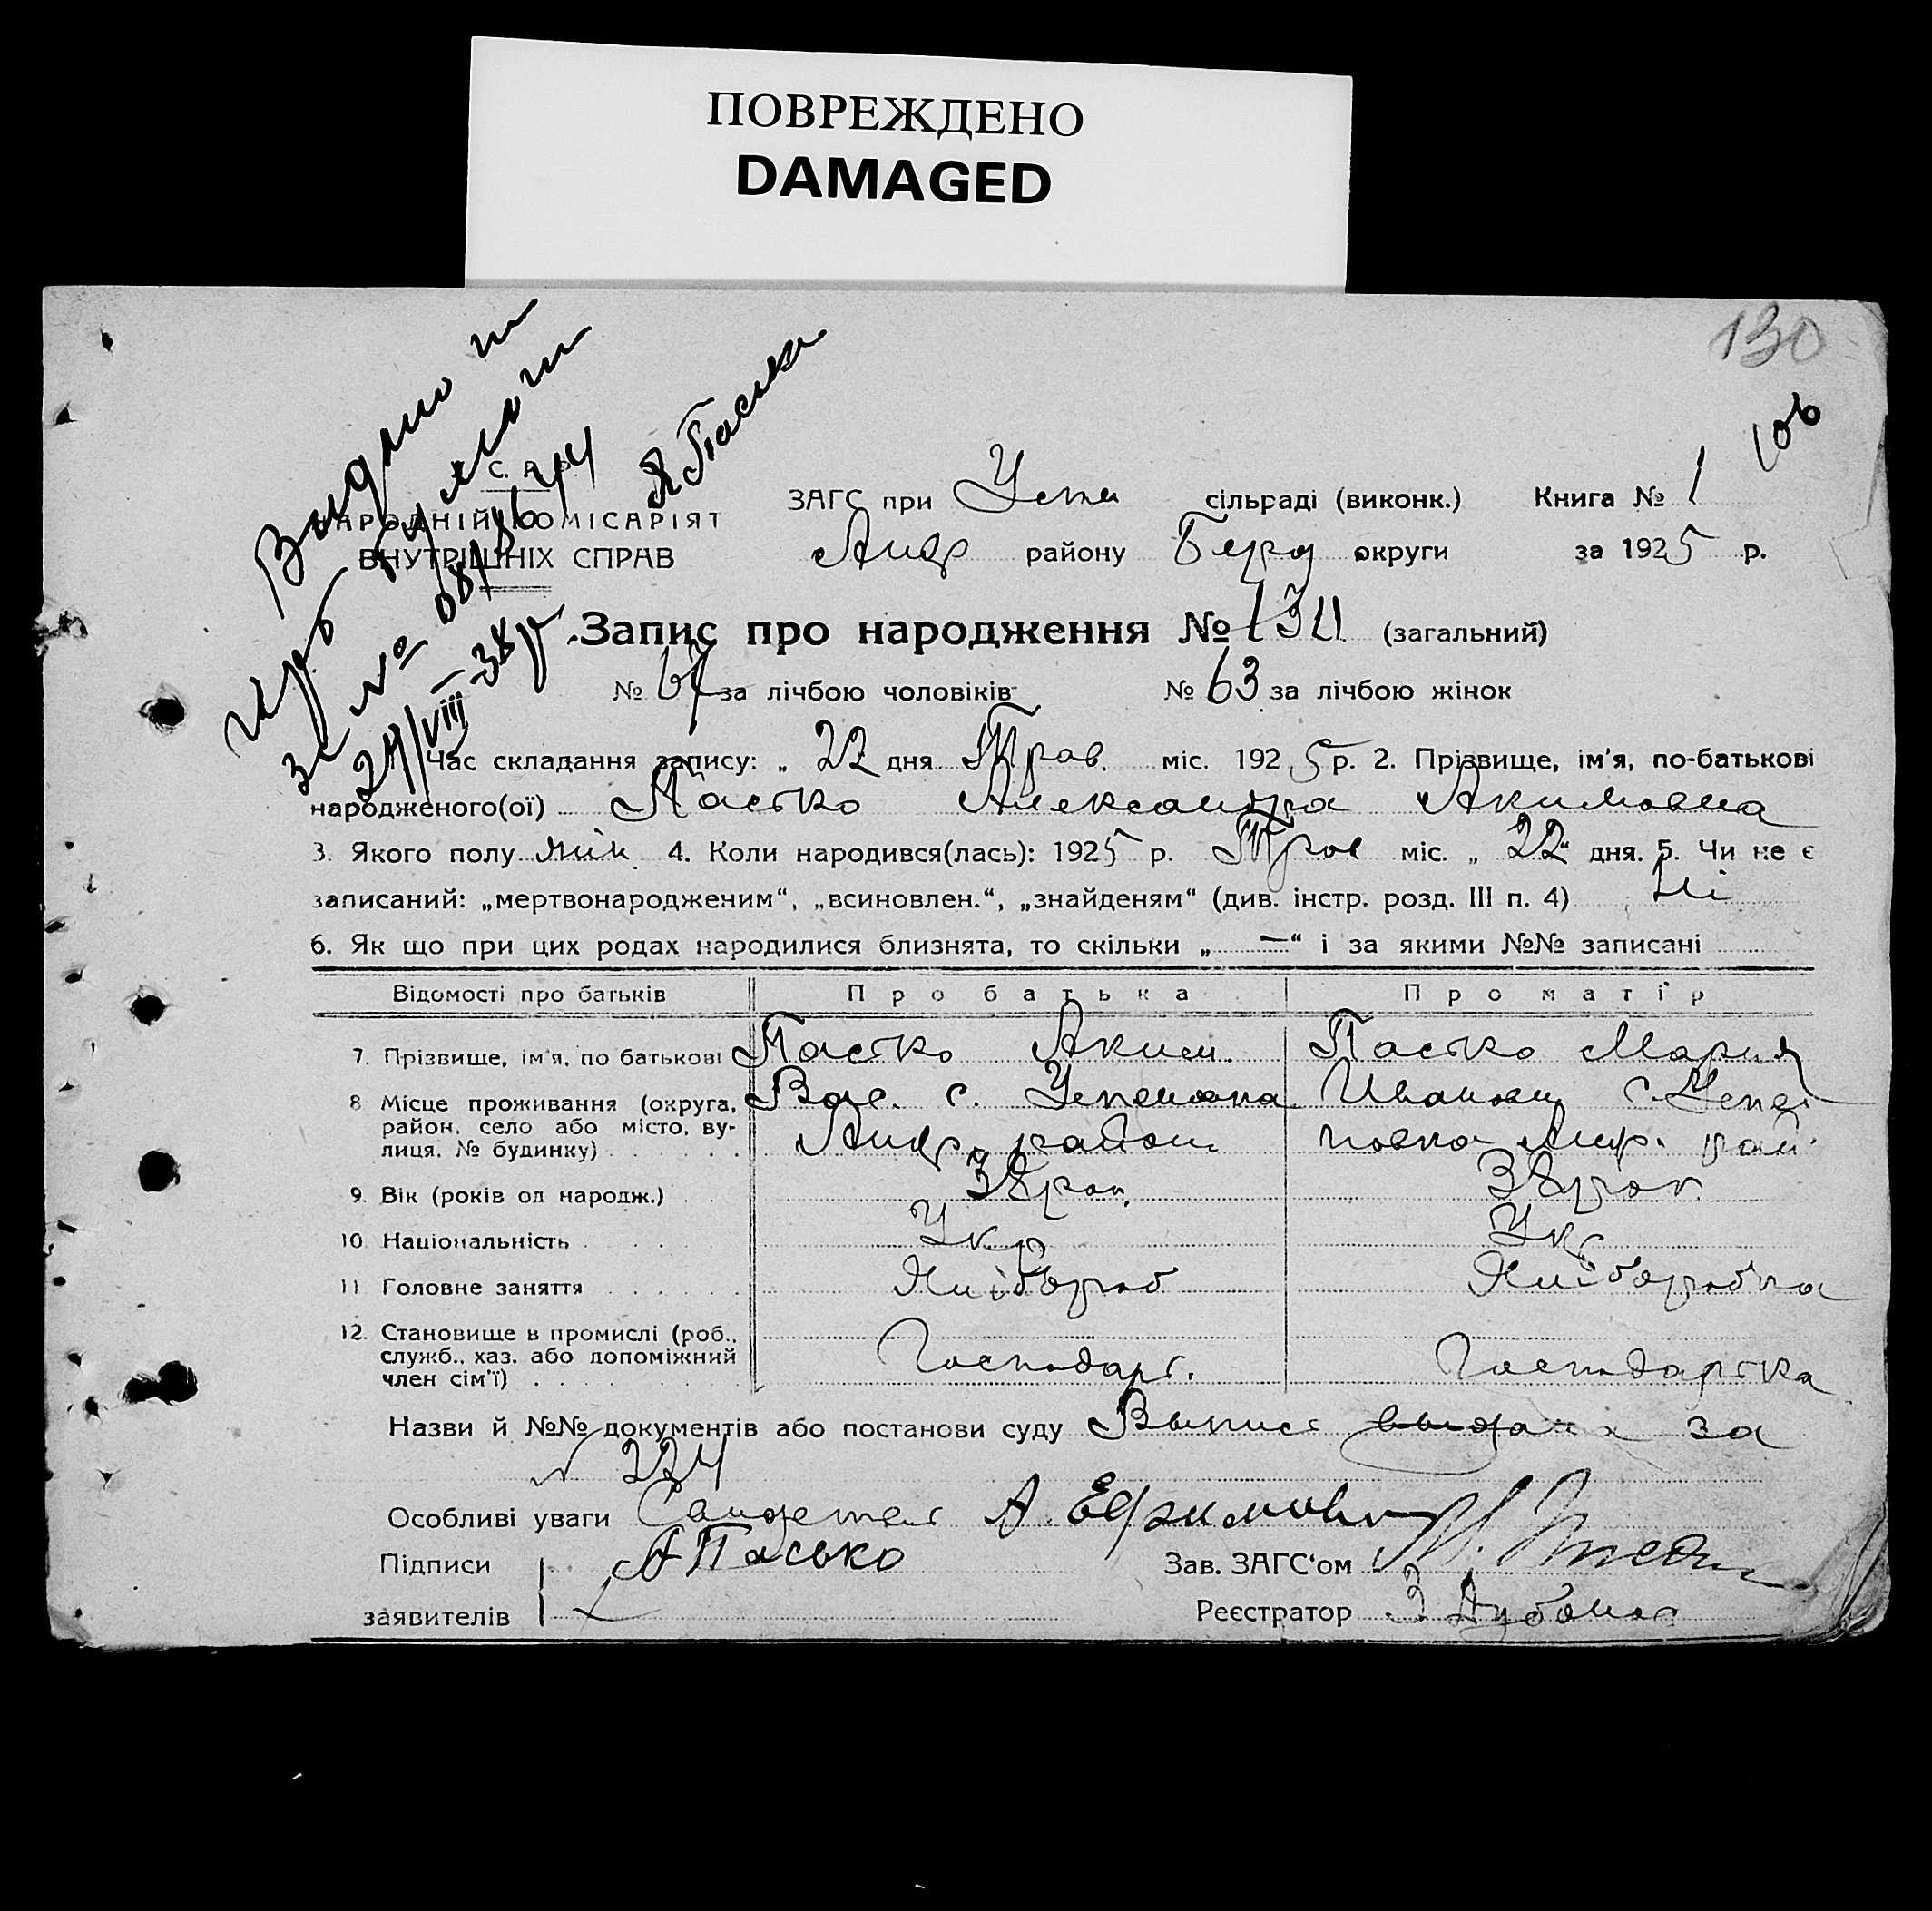 ПОВРЕЖДЕНО
DAMAGED
130
106
Пасько
НАРОДНІЙ КОМІСАРІЯТ
ВНУТРІШНІХ СПРАВ
за №
ЗАГС при Успе сільраді (виконк.) Книга № 1
Андр району Берд округи за 1925 р.
Запис про народження № (загальний)
№ 67 за лічбою чоловіків № 63 за лічбою жінок
Час складання запису: „ 22 дня Трав. міс. 1925 р. 2. Прізвище, ім'я, по-батькові
народженого(ої) Пасько Александра Акимовна
3. Якого полу жін. 4. Коли народився(лась): 1925 р. Трав міс. „ 22" дня. 5. Чи не є
записаний: „мертвонародженим“, „всиновлен.“, „знайденям“ (див. інстр. розд. III п. 4) Ні
6. Як що при цих родах народилися близнята, то скільки „ — “ і за якими №№ записані
Відомості про батьків Про батька Про матір
7. Прізвище, ім'я, по батькові Пасько Аким. Пасько Мария
8 Місце проживання (округа, Вас. с. Иванов с.
район, село або місто, ву- Андр. район новка Андр. рай.
лиця, № будинку)
9. Вік (років од народж.) 38 рок. 38 рок.
10. Національність Укр Укр
11 Головне заняття Хлібороб Хліборобка
12. Становище в промислі (роб.,
служб., хаз. або допоміжний Господарь. Господарька
член сім'ї)
Назви й №№ документів або постанови суду Выпись выдана за
№ 224
Особливі уваги А. Ефимов
Підписи А Пасько Зав. ЗАГС'ом
заявителів Реєстратор